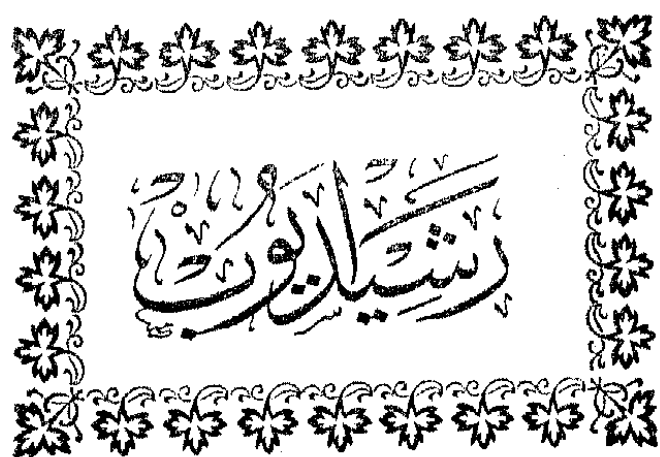 رشيد ايوب